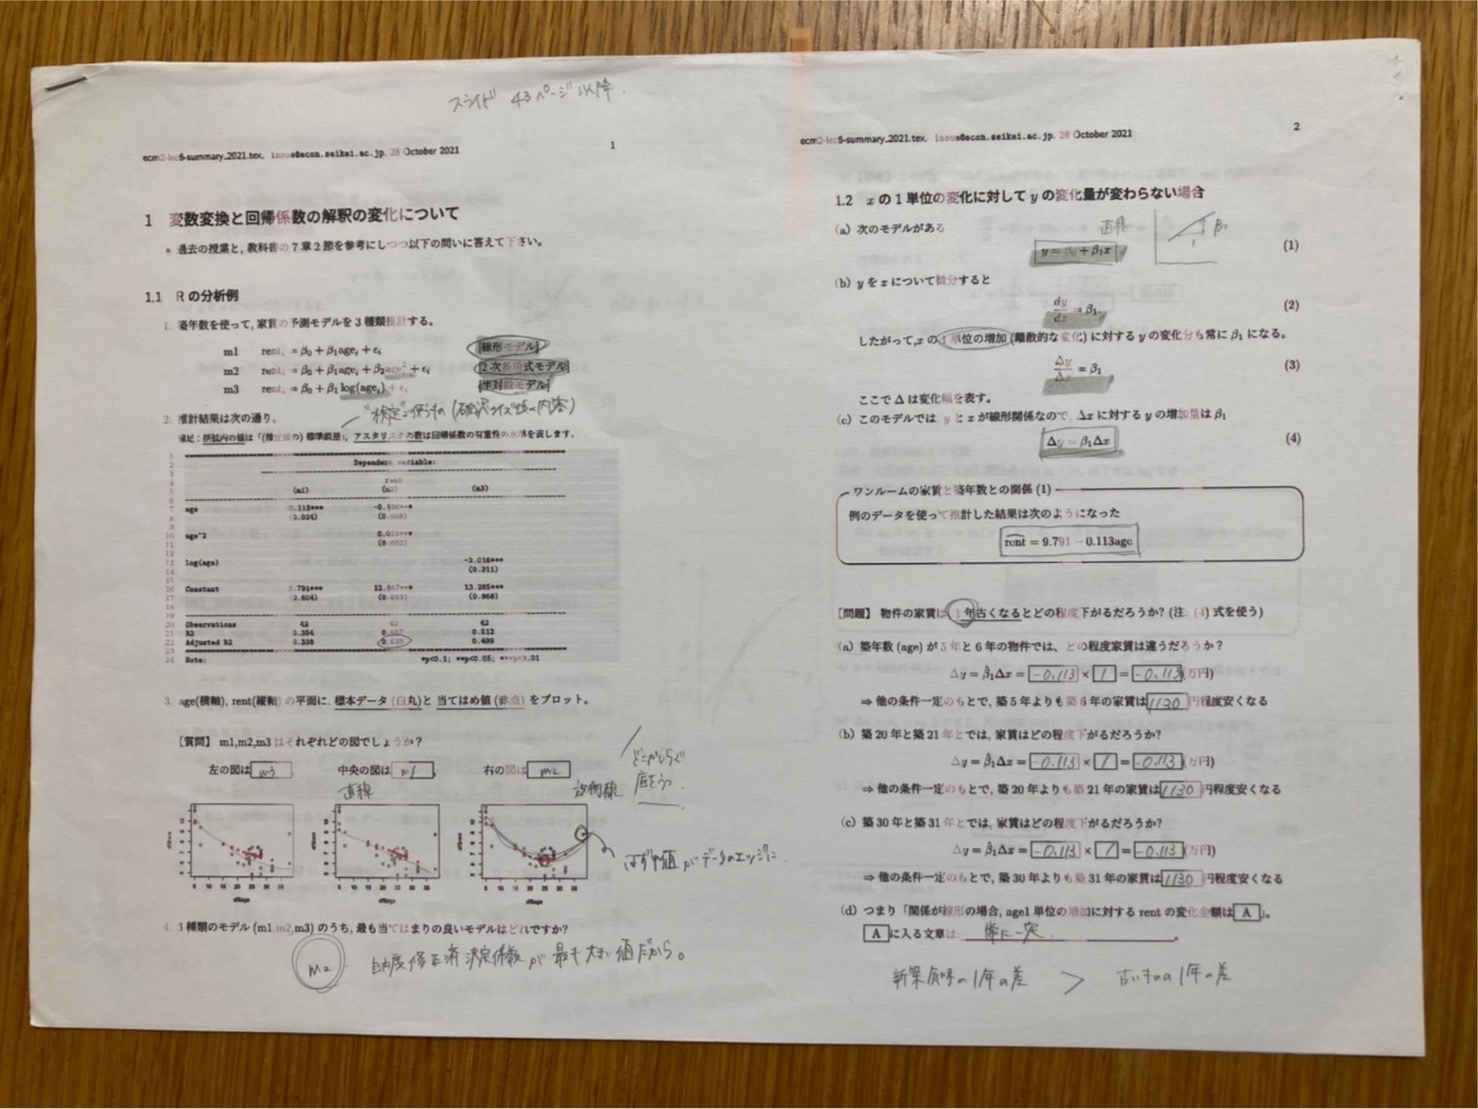 スライド 43ページ以降.
ecm2-lec6-summary_2021.tex, inoue@econ.seikei.ac.jp, 28 October 2021
1
1 変数変換と回帰係数の解釈の変化について
• 過去の授業と, 教科書の7章2節を参考にしつつ以下の問いに答えて下さい。
1.1 Rの分析例
1. 築年数を使って, 家賃の予測モデルを3種類推計する。
m1 rentᵢ = β₀ + β₁ageᵢ + εᵢ [線形モデル]
m2 rentᵢ = β₀ + β₁ageᵢ + β₂ageᵢ² + εᵢ [2次多項式モデル]
m3 rentᵢ = β₀ + β₁ log(ageᵢ) + εᵢ [半対数モデル]
2. 推計結果は次の通り。
補足: 括弧内の値は「(推定値の) 標準誤差」, アスタリスクの数は回帰係数の有意性の水準を表します。
Dependent variable:
rent
(m1) (m2) (m3)
age -0.113***
(0.024)
age^2
log(age) -2.016***
(0.311)
Constant 9.791*** 13.285***
(0.604) (0.968)
Observations 42 42 42
R2 0.354 0.512
Adjusted R2 0.338 0.499
Note: *p<0.1; **p<0.05; ***p<0.01
3. age(横軸), rent(縦軸) の平面に, 標本データ (白丸)と 当てはめ値 (赤点) をプロット。
[質問] m1,m2,m3 はそれぞれどの図でしょうか?
左の図は m3 中央の図は m1 右の図は m2
直線 放物線
どこかしらで
底をうつ.
はずれ値がデータのエッジに.
4. 3種類のモデル (m1,m2,m3) のうち, 最も当てはまりの良いモデルはどれですか?
m2 自由度修正済決定係数が最も大きい値だから。
ecm2-lec6-summary_2021.tex, inoue@econ.seikei.ac.jp, 28 October 2021
2
1.2 x の1単位の変化に対して y の変化量が変わらない場合
(a) 次のモデルがある 直線
y = β₀ + β₁x (1)
1 β₁
(b) y を x について微分すると
dy/dx = β₁ (2)
したがって, x の 1単位の増加 (離散的な変化) に対する y の変化分も常に β₁ になる。
Δy/Δx = β₁ (3)
ここで Δ は変化幅を表す。
(c) このモデルでは, y と x が線形関係なので, Δx に対する y の増加量は β₁
Δy = β₁Δx (4)
ワンルームの家賃と築年数との関係 (1)
例のデータを使って推計した結果は次のようになった
rent̂ = 9.791 − 0.113age
[問題] 物件の家賃は, 1年古くなるとどの程度下がるだろうか? (注: (4) 式を使う)
(a) 築年数 (age) が5年と6年の物件では, どの程度家賃は違うだろうか?
Δy = β̂₁Δx = -0.113 × 1 = -0.113 (万円)
⇒ 他の条件一定のもとで, 築5年よりも築6年の家賃は 1130 円程度安くなる
(b) 築20年と築21年とでは, 家賃はどの程度下がるだろうか?
Δy = β̂₁Δx = -0.113 × 1 = -0.113 (万円)
⇒ 他の条件一定のもとで, 築20年よりも築21年の家賃は 1130 円程度安くなる
(c) 築30年と築31年とでは, 家賃はどの程度下がるだろうか?
Δy = β̂₁Δx = -0.113 × 1 = -0.113 (万円)
⇒ 他の条件一定のもとで, 築30年よりも築31年の家賃は 1130 円程度安くなる
(d) つまり「関係が線形の場合, age1単位の増加に対する rent の変化金額は A 」。
A に入る文章は: 常に一定 。
の1年の差 > 古いものの1年の差